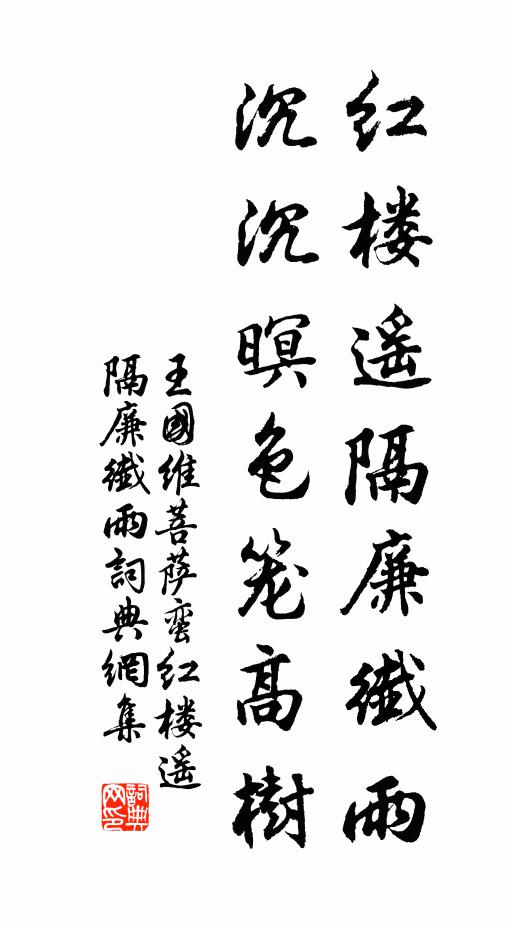 红楼遥隔廉纖雨
沉沉暝色笼高樹
王國维菩萨蛮红楼遥
隔廉纖雨詞典網集
詞典网印